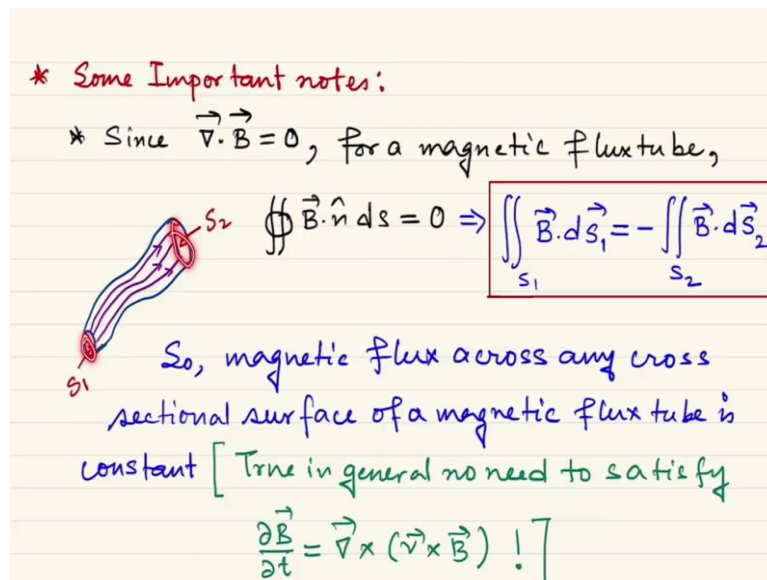 * Some Important notes:
* Since ∇⃗·B⃗ = 0, for a magnetic flux tube,
∯ B⃗·n̂ ds = 0 ⇒ ∬_{S1} B⃗·dS⃗₁ = - ∬_{S2} B⃗·dS⃗₂
S2
S1
So, magnetic flux across any cross
sectional surface of a magnetic flux tube is
constant [True in general no need to satisfy
∂B⃗/∂t = ∇⃗ × (v⃗ × B⃗) !]